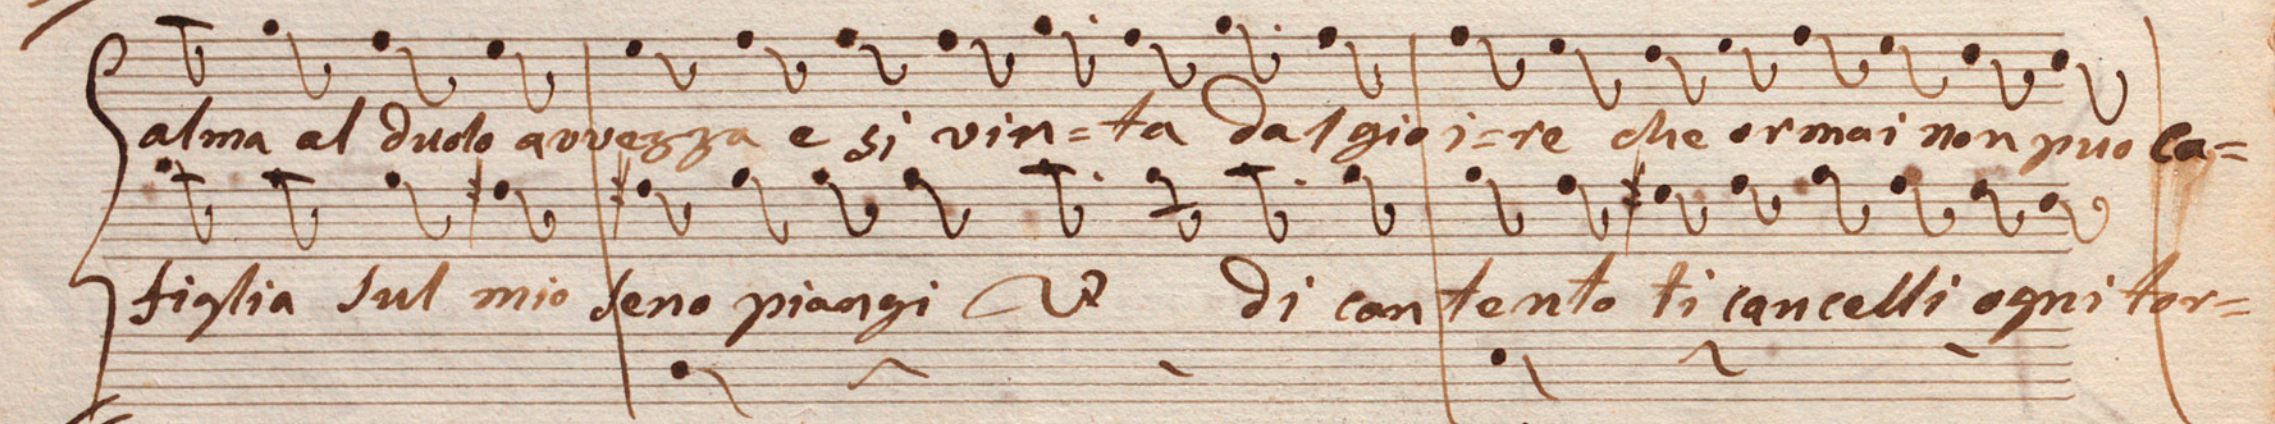 alma al duolo avvezza e si vin=ta dal gioi=re che ormai non puo ca=
figlia sul mio seno piangi di contento ti cancelli ogni tor=